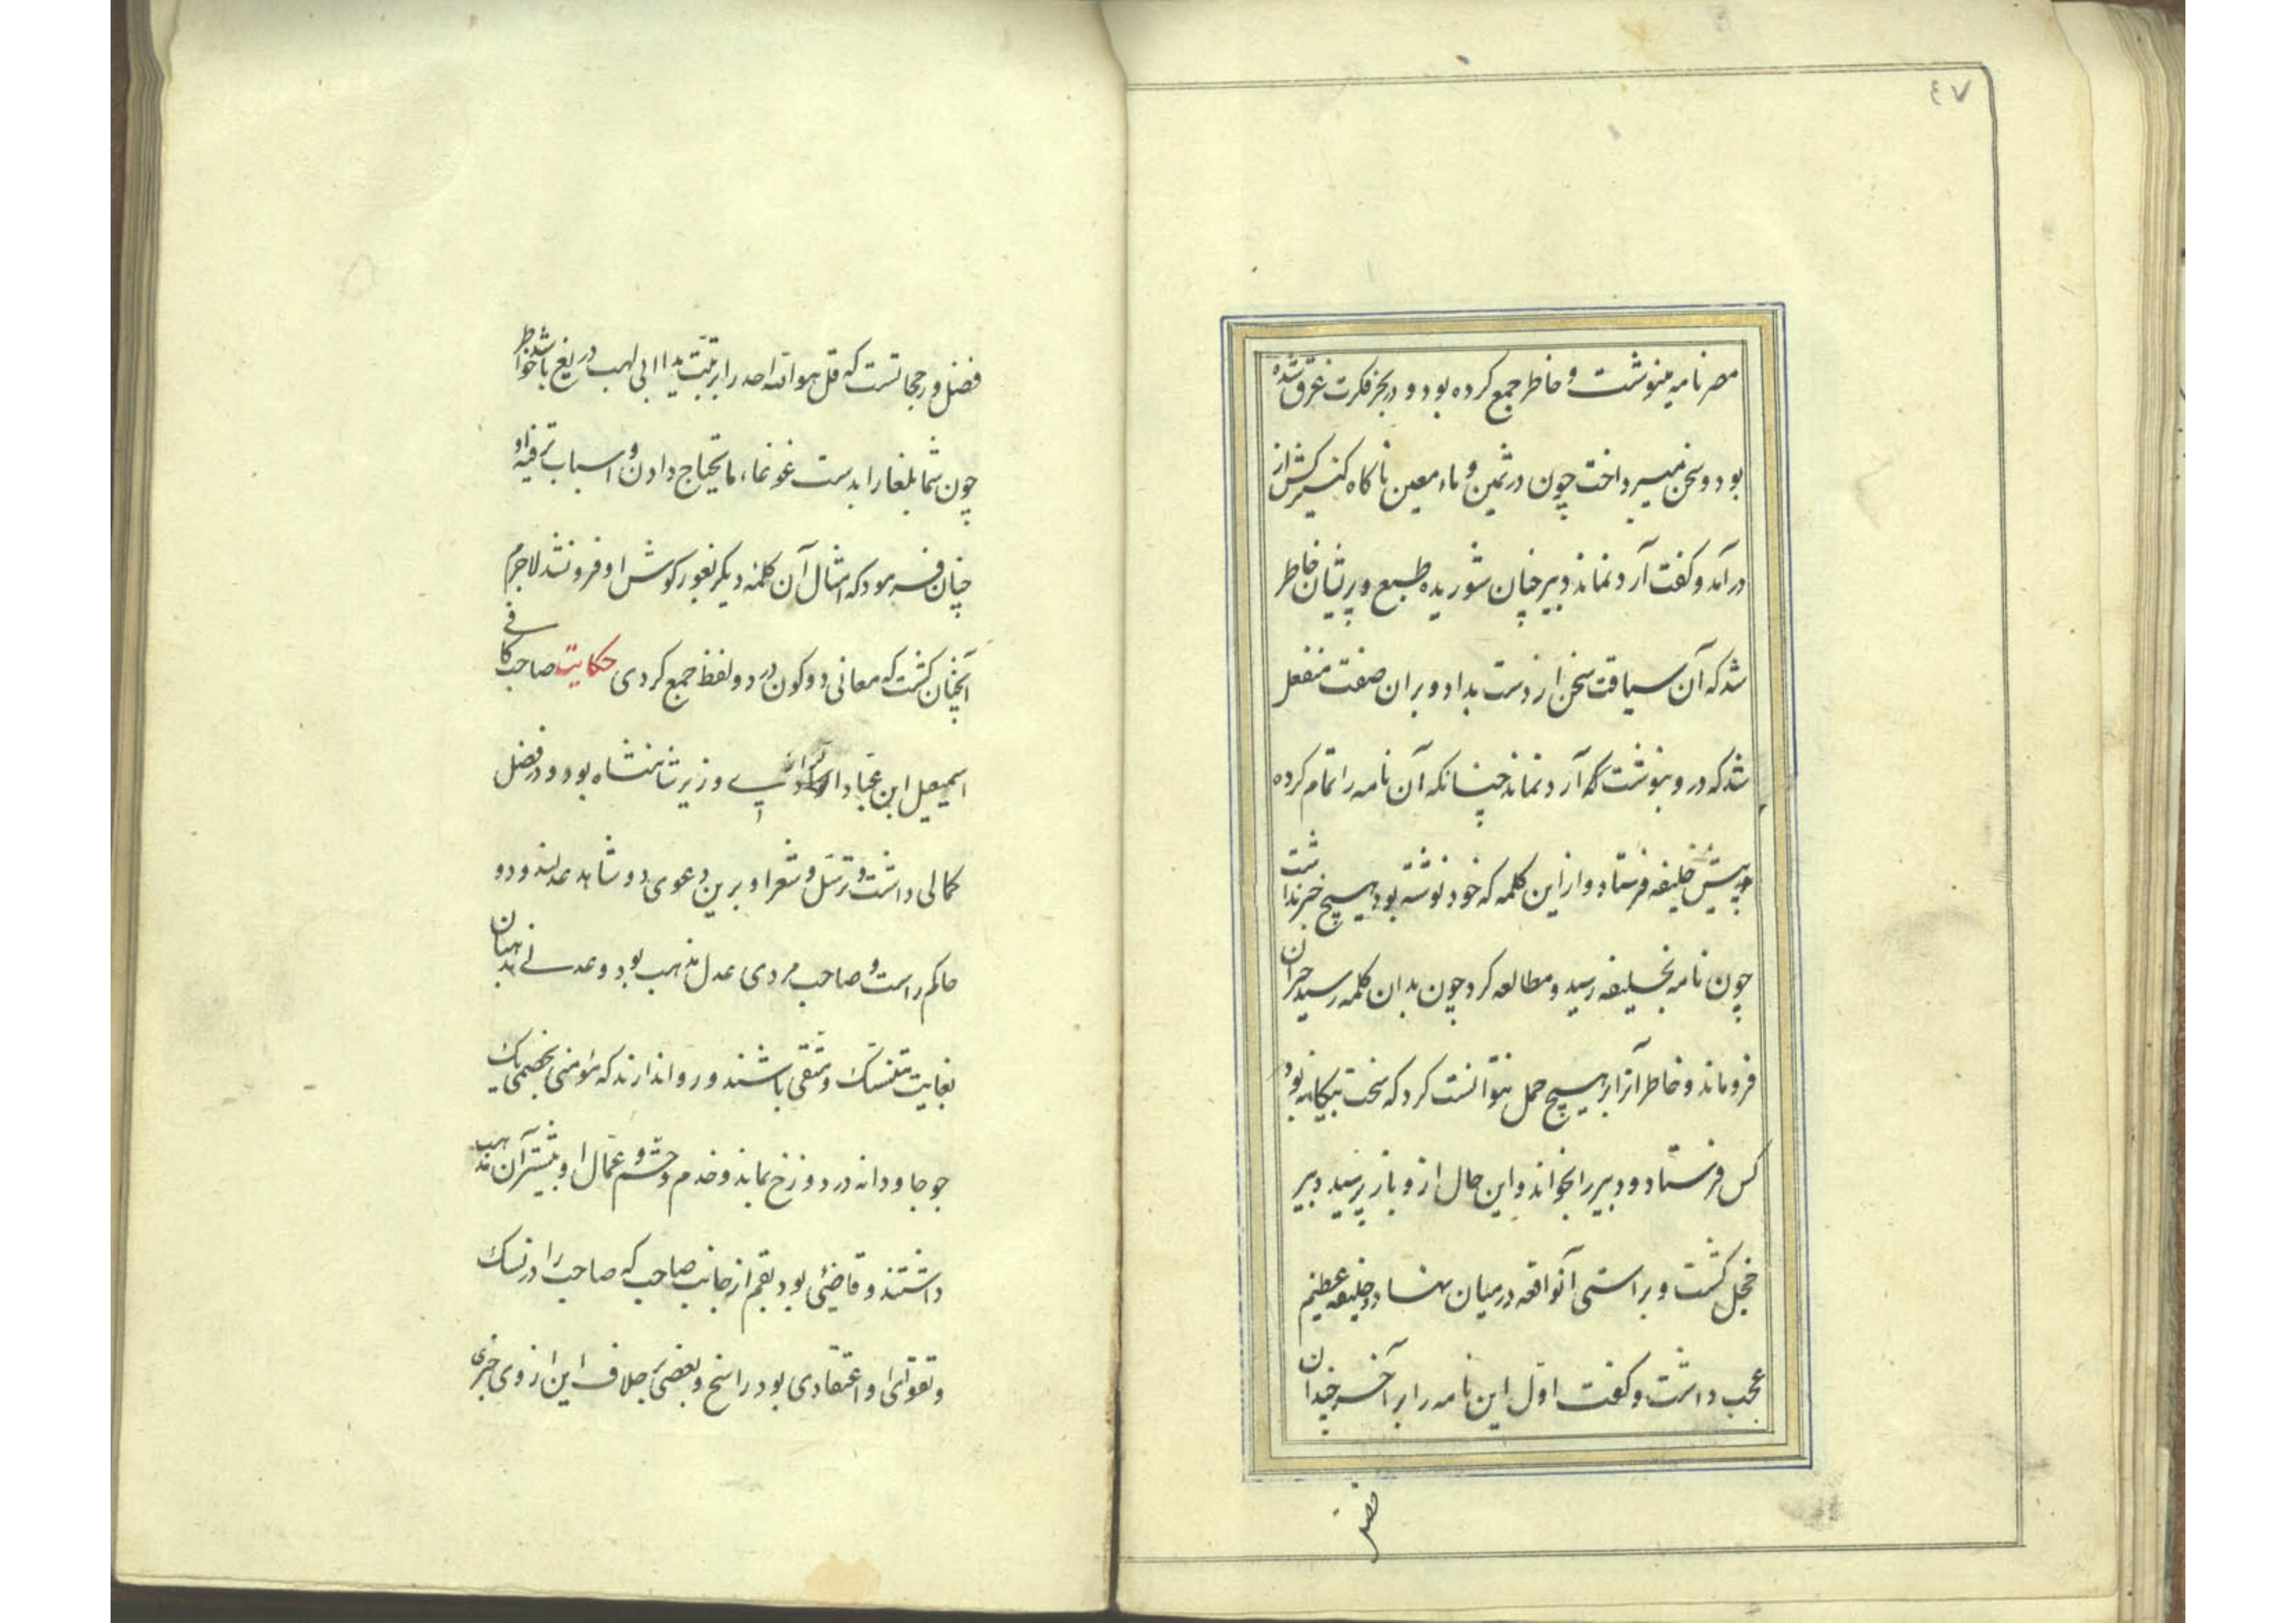 ٤٧
مصر نامه مینوشت و خاطر جمع کرده بود و در بحر فکرت غرق شده
بود و سخن میپرداخت چون در ثمین و ماء معین ناکاه کنیزکش از
در آمد و کفت آرد نماند دبیر چنان شوریده طبع و پریشان خاطر
شد که آن سیاقت سخن از دست بداد و بران صفت منفعل
شد که در و بنوشت که آرد نماند چنانکه آن نامه را تمام کرده
به پیش خلیفه فرستاد و از این کلمه که خود نوشته بود هیچ خبر نداشت
چون نامه بخلیفه رسید و مطالعه کرد چون بدان کلمه رسید حیران
فروماند و خاطر آنرا بر هیچ حمل نتوانست کرد که سخت بیکانه بود
کس فرستاد و دبیر را بخواند و این حال از و باز پرسید دبیر
خجل کشت و براستی آنواقعه در میان نهاد و خلیفه عظیم
عجب داشت و کفت اول این نامه را بر آخر چندان
فضل
فضل و رجحانست که قل هو الله احد را بر تبت یدا ابی لهب دریغ باشد خواطر
چون شما بلغا را بدست غوغاء مایحتاج دادن و اسباب ترفیه او
چنان فرمود که امثال آن کلمه دیکر بغور کوش او فرو نشد لاجرم
آنچنان کشت که معانی دو کون در دو لفظ جمع کردی حکایت صاحب کافی
اسمعیل ابن عباد الرازی وزیر شاهنشاه بود و در فضل
کمالی داشت و ترسل و شعر او برین دعوی دو شاهد عدلند و دو
حاکم راست و صاحب مردی عدل مذهب بود و عدلی مذهبان
بغایت متنسک و متقی باشند و روا ندارند که مؤمنی بخصمی یک
جو جاودانه در دوزخ بماند و خدم و حشم و عمال او بیشتر آن مذهب
داشتند و قاضیی بود بقم از جانب صاحب که صاحب را در نسک
و تقوای او اعتقادی بود راسخ و بعضی بر خلاف این از وی خبری